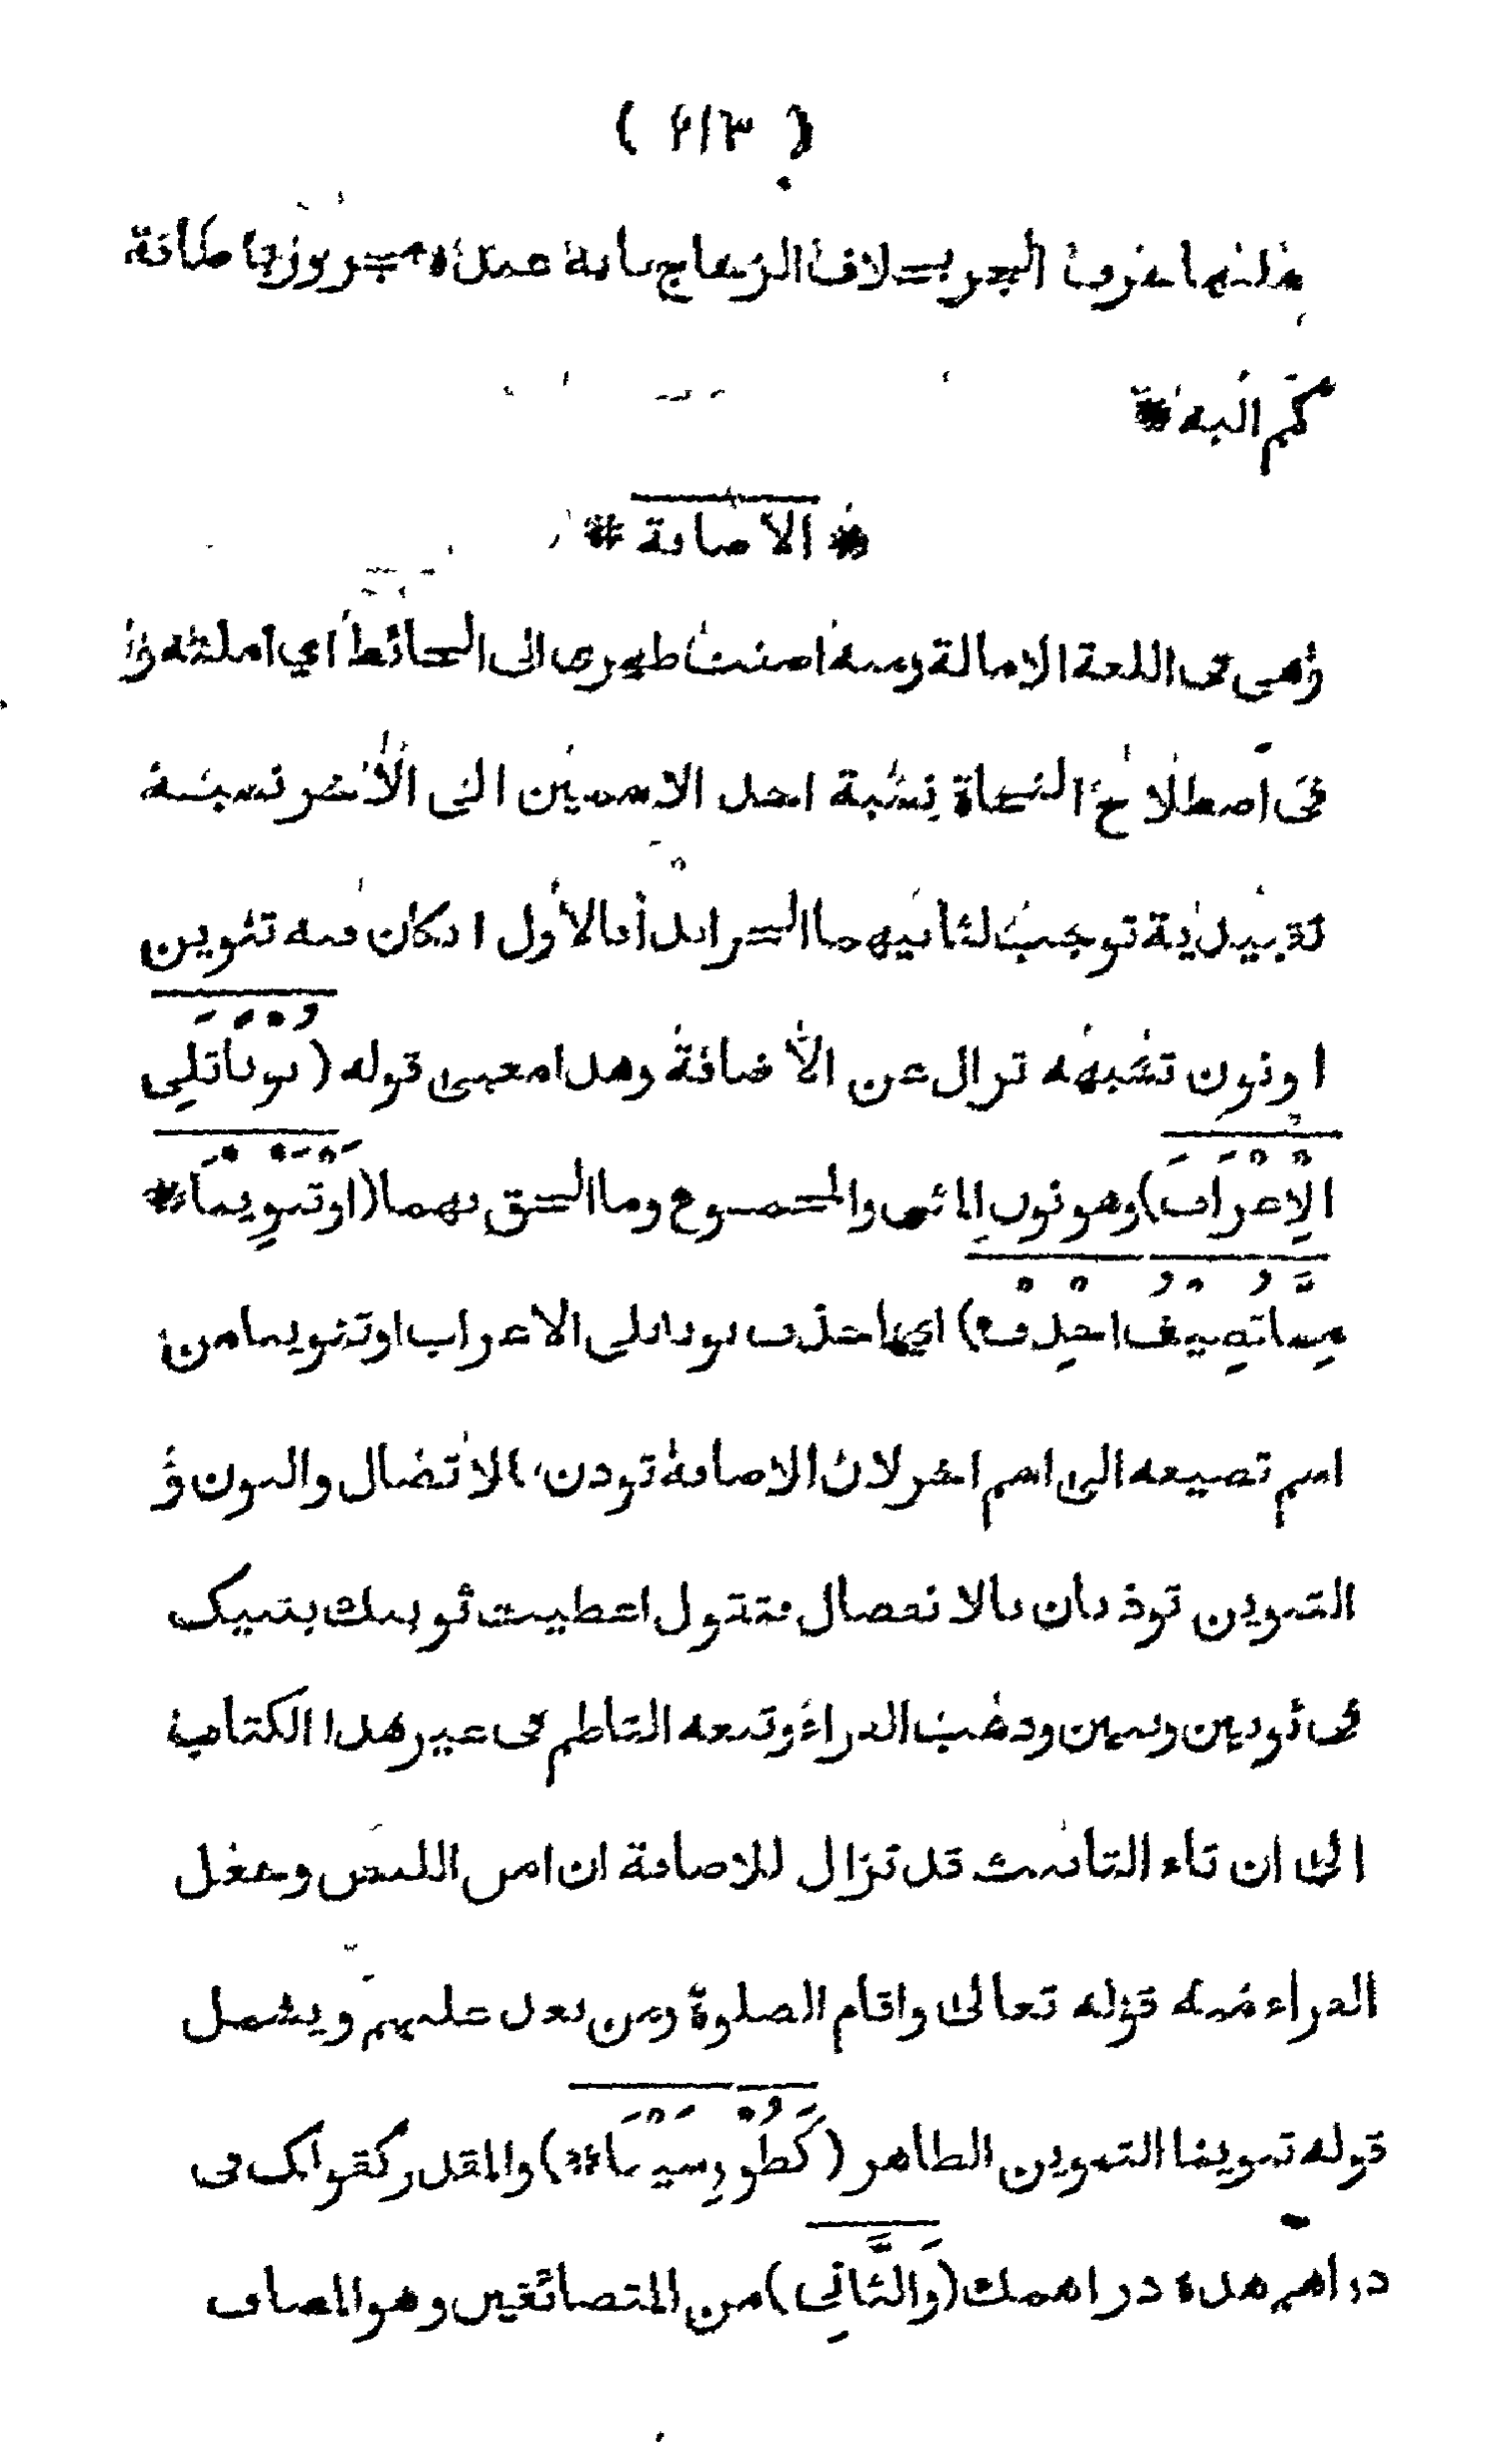 ( ٢١٣ )
عليهما حرف الجر بخلاف الزجاج فانه عنده مجرور باضافة
كم اليه *
* الاضافة *
وهي في اللغة الامالة ومنه اضفت ظهري الى الحائط اي املته و
في اصطلاح النحاة نسبة احد الاسمين الى الآخر نسبة
تقييدية توجب لثانيهما الجر ابدا فالاول ان كان فيه تنوين
او نون تشبهه تزال عن الاضافة وهذا معنى قوله (نُونًا تَلِي
الْإِعْرَابَ) وهو نون المثنى والمجموع وما الحق بهما (أَوْ تَنْوِينَا *
مِمَّا تُضِيفُ احْذِفْ) اي احذف نونا تلي الاعراب او تنوينا من
اسم تضيفه الى اسم آخر لان الاضافة توذن بالاتصال والنون و
التنوين توذنان بالانفصال فتقول اعطيت ثوبيك بنيك
في ثوبين وبنين وذهب الفراء وتبعه الناظم في غير هذا الكتاب
الى ان تاء التانيث قد تزال للاضافة ان امن اللبس وجعل
الفراء منه قوله تعالى واقام الصلوة ومن بعد غلبهم ويشمل
قوله تنوينا التنوين الظاهر (كَطُورِ سِينَا *) والمقدر كقولك في
دراهم هذه دراهمك (وَالثَّانِي) من المتضائفين وهو المضاف